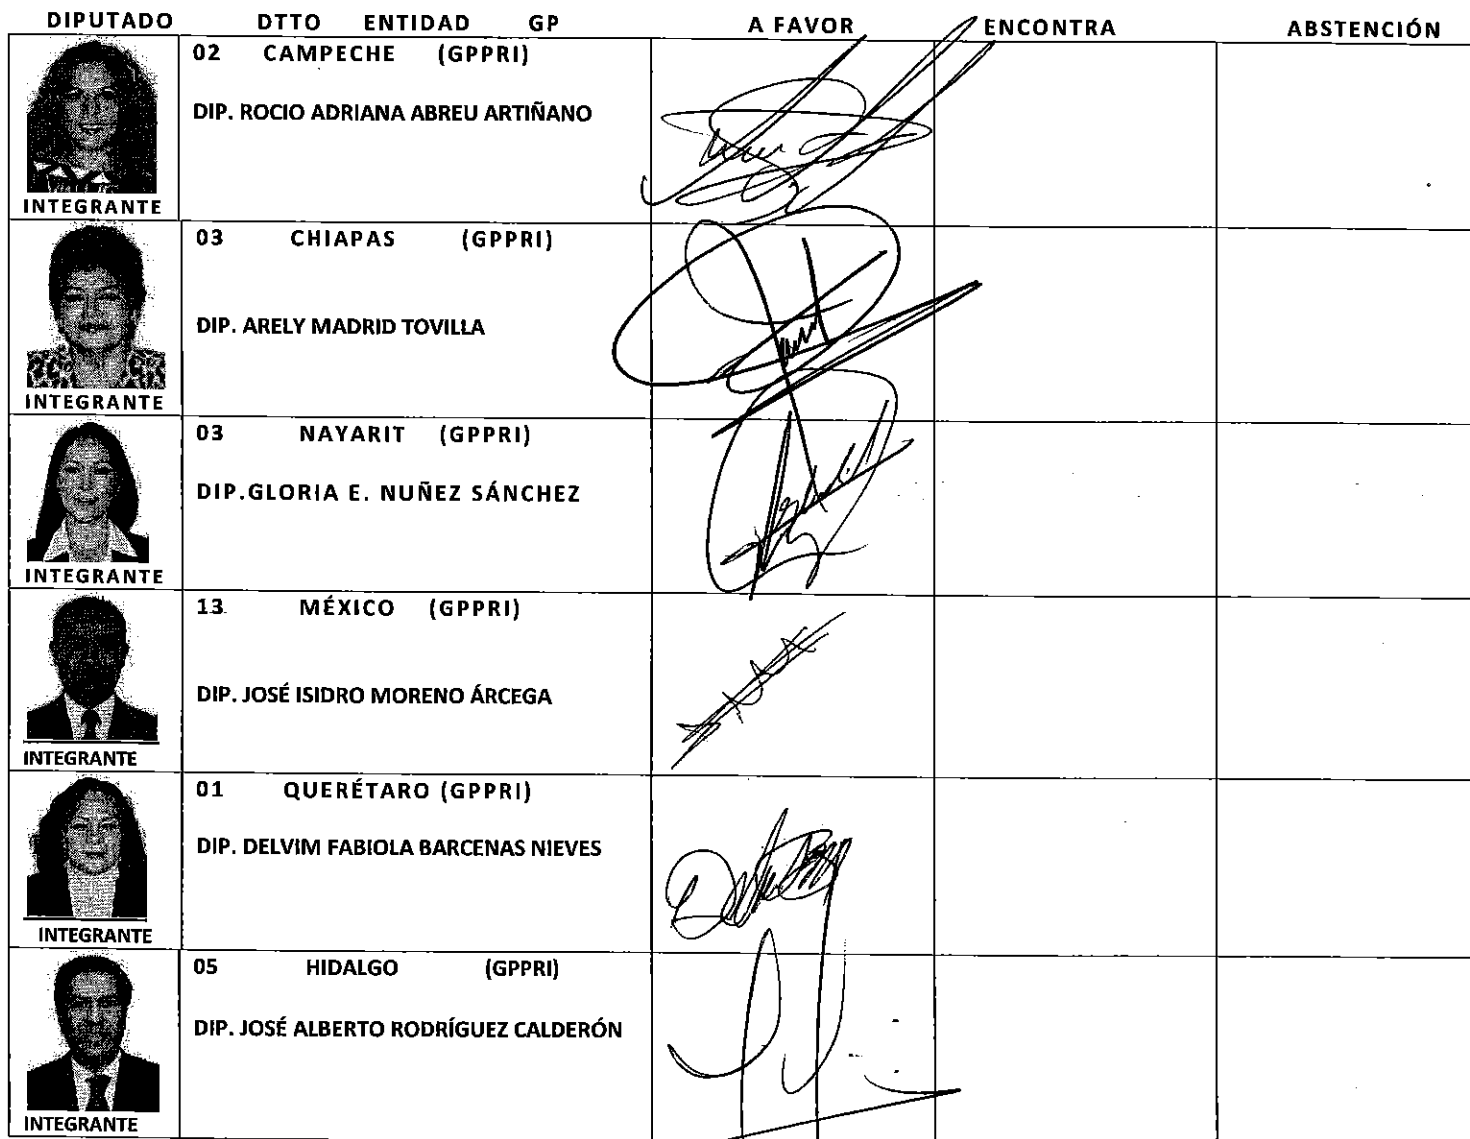 DIPUTADO DTTO ENTIDAD GP A FAVOR ENCONTRA ABSTENCIÓN
02 CAMPECHE (GPPRI)
DIP. ROCIO ADRIANA ABREU ARTIÑANO
INTEGRANTE
03 CHIAPAS (GPPRI)
DIP. ARELY MADRID TOVILLA
INTEGRANTE
03 NAYARIT (GPPRI)
DIP.GLORIA E. NUÑEZ SÁNCHEZ
INTEGRANTE
13 MÉXICO (GPPRI)
DIP. JOSÉ ISIDRO MORENO ÁRCEGA
INTEGRANTE
01 QUERÉTARO (GPPRI)
DIP. DELVIM FABIOLA BARCENAS NIEVES
INTEGRANTE
05 HIDALGO (GPPRI)
DIP. JOSÉ ALBERTO RODRÍGUEZ CALDERÓN
INTEGRANTE